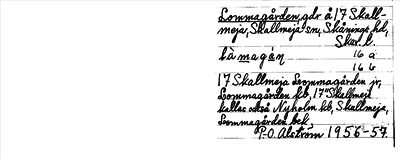 Lommagården, gdr å 17 Skall-
meja, Skallmeja sn, Skånings hd,
Skar. l.
16 a
16 b
17 Skallmeja Lommagården jr,
Lommagården hb, 17 Skallmeja
kallas också Nyholm hb, Skallmeja,
Lommagården bek.
P.O. Alström 1956-57.